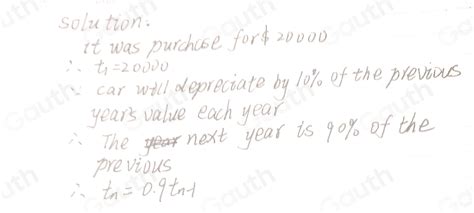 solution.
it was purchase for $ 20000
∴ t₁=20000
∵ car will depreciate by 10% of the previous
year's value each year
∴ The year next year is 90% of the
previous
∴ tn = 0.9tn-1